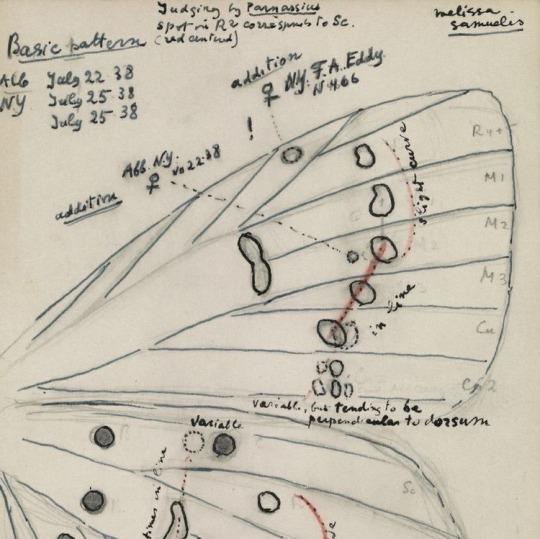 Judging by Parnassius
spot in R2 corresponds to Sc.
(red centred)
melissa
samuelis
Basic pattern
Alb July 22 38
NY July 25 38
July 25 38
addition
♀ N.Y. F.A. Eddy
!
Alb. N.Y. 22.38
♀
addition
slight curve
R4+
M1
M2
M3
in line
Cu
Cu 2
variable, but tending to be
perpendicular to dorsum
variable
in line
Sc